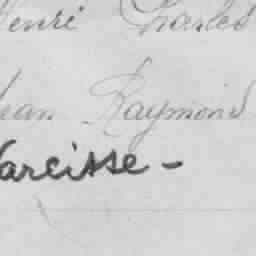 Henri Charles
Jean Raymond
Narcisse -